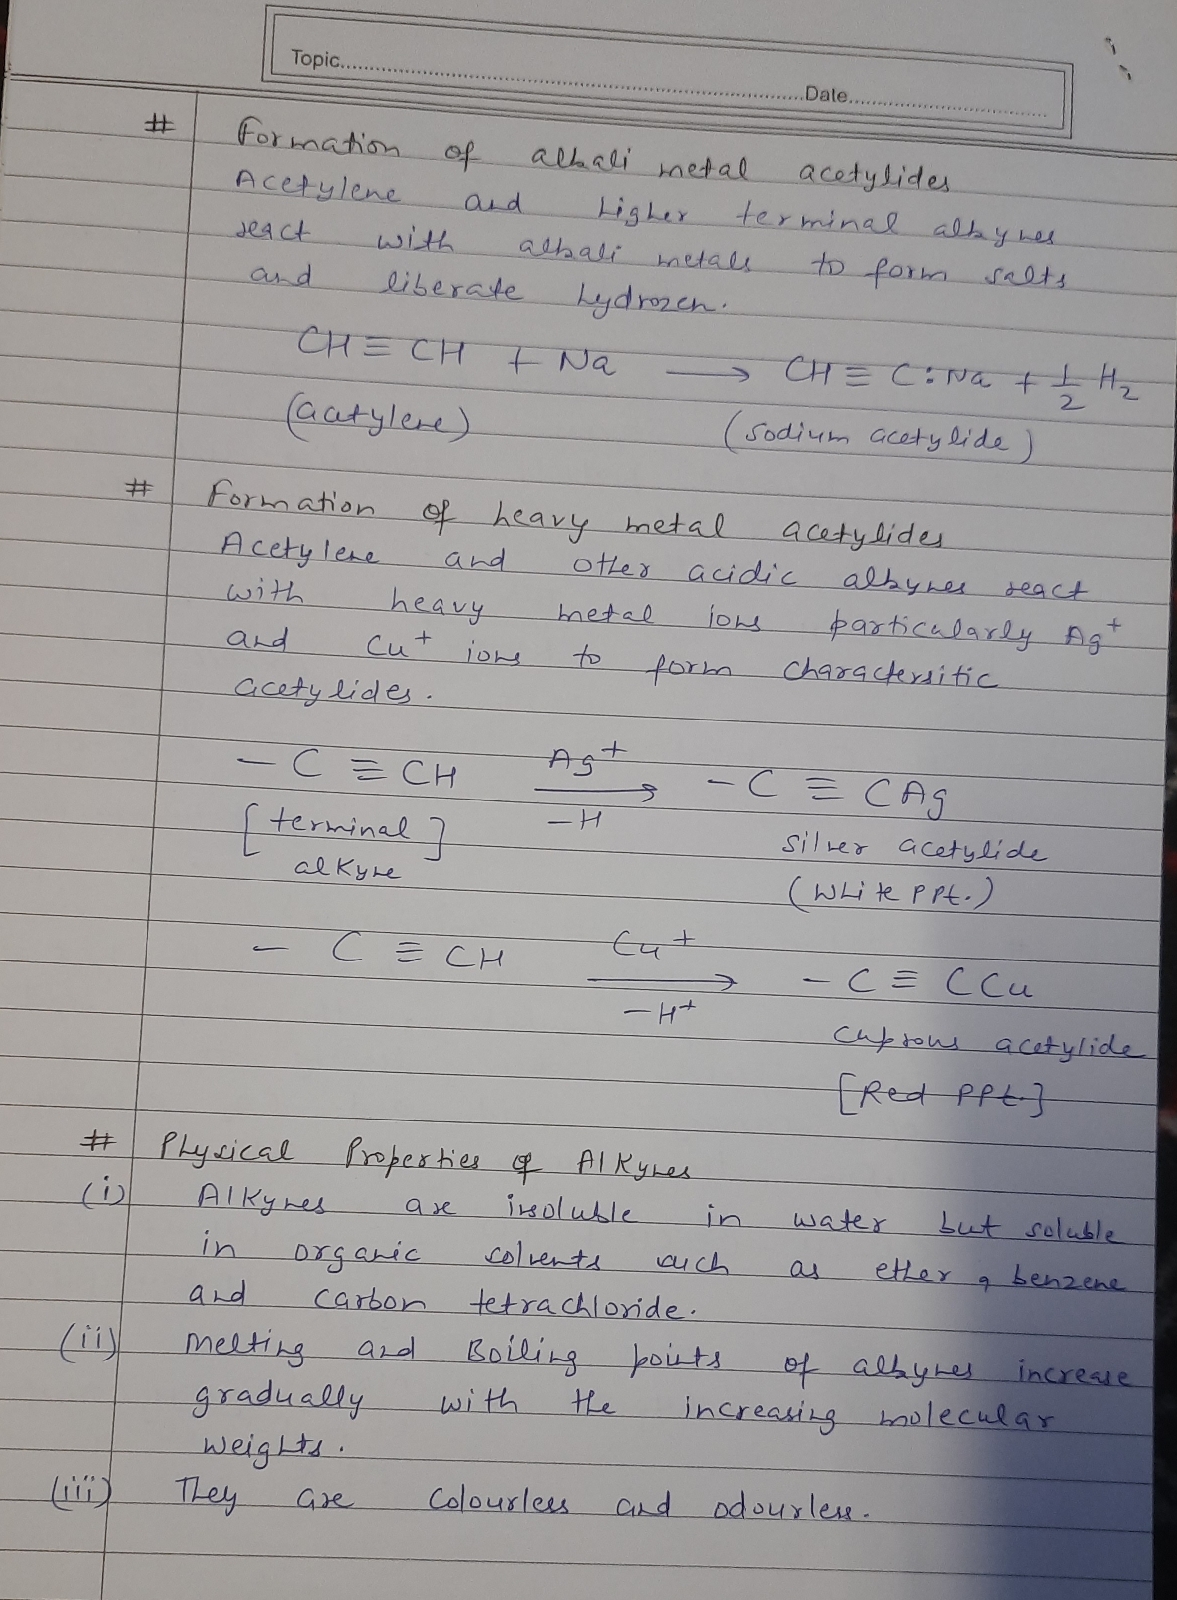 Topic.......... Date..........
# Formation of alkali metal acetylides
Acetylene and higher terminal alkynes
react with alkali metals to form salts
and liberate hydrogen.
CH ≡ CH + Na ⟶ CH ≡ C:Na + 1/2 H₂
(acetylene) (sodium acetylide)
# Formation of heavy metal acetylides
Acetylene and other acidic alkynes react
with heavy metal ions particularly Ag⁺
and Cu⁺ ions to form charactersitic
acetylides.
– C ≡ CH Ag⁺ ⟶ – C ≡ CAg
[terminal] –H silver acetylide
alkyne (White ppt.)
– C ≡ CH Cu⁺ ⟶ – C ≡ CCu
–H⁺
cuprous acetylide
[Red ppt.]
# Physical Properties of Alkynes
(i) Alkynes are insoluble in water but soluble
in organic solvents such as ether, benzene
and carbon tetrachloride.
(ii) Melting and Boiling points of alkynes increase
gradually with the increasing molecular
weights.
(iii) They are colourless and odourless.